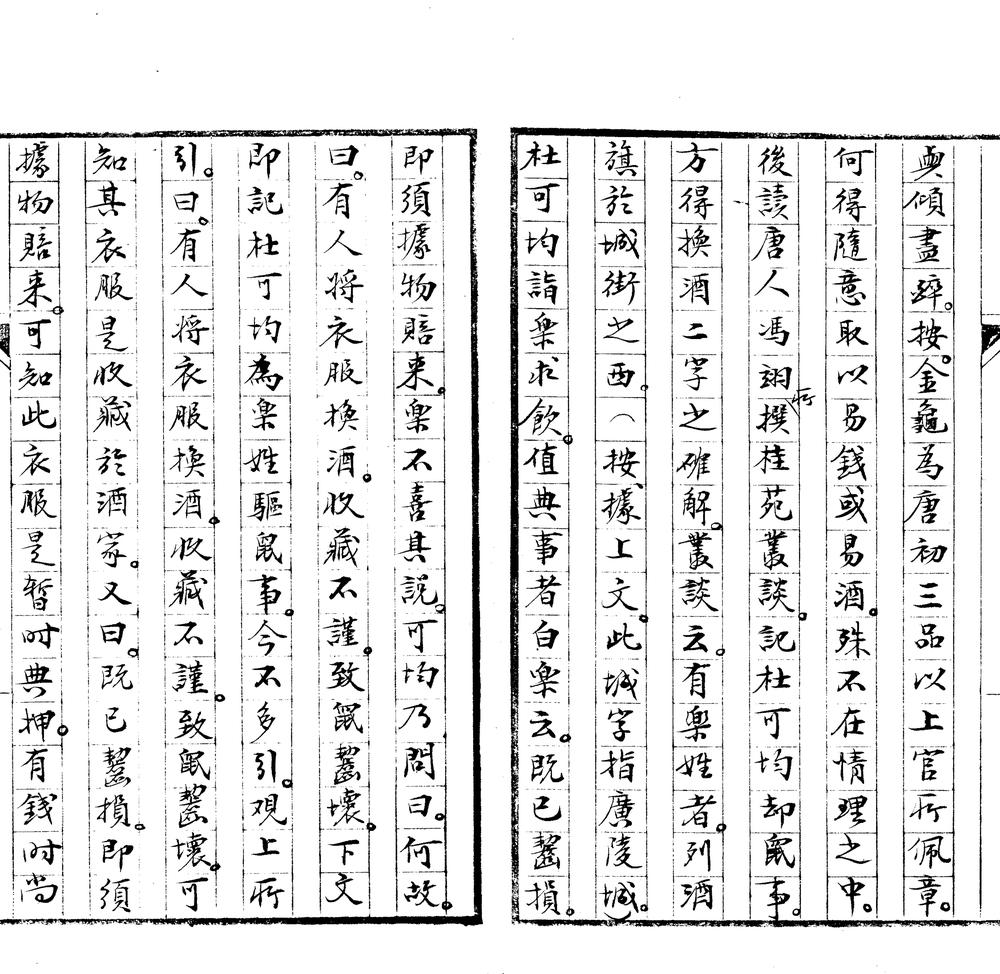 與傾盡醉。按。金龜為唐初三品以上官所佩章。
何得隨意取以易錢或易酒。殊不在情理之中。
後讀唐人馮翊所撰桂苑叢談。記杜可均却鼠事。
方得換酒二字之確解。叢談云。有樂姓者。列酒
旗於城街之西。（按據上文。此城字指廣陵城）
杜可均詣樂求飲。值典事者白樂云。既已齧損。
即須據物賠来。樂不喜其説。可均乃問曰。何故。
曰。有人將衣服換酒。收藏不謹。致鼠齧壞。下文
即記杜可均為樂姓驅鼠事。今不多引。觀上所
引。曰。有人將衣服換酒。收藏不謹。致鼠齧壞。可
知其衣服是收藏於酒家。又曰。既已齧損。即須
據物賠来。可知此衣服是暫时典押。有錢时尚